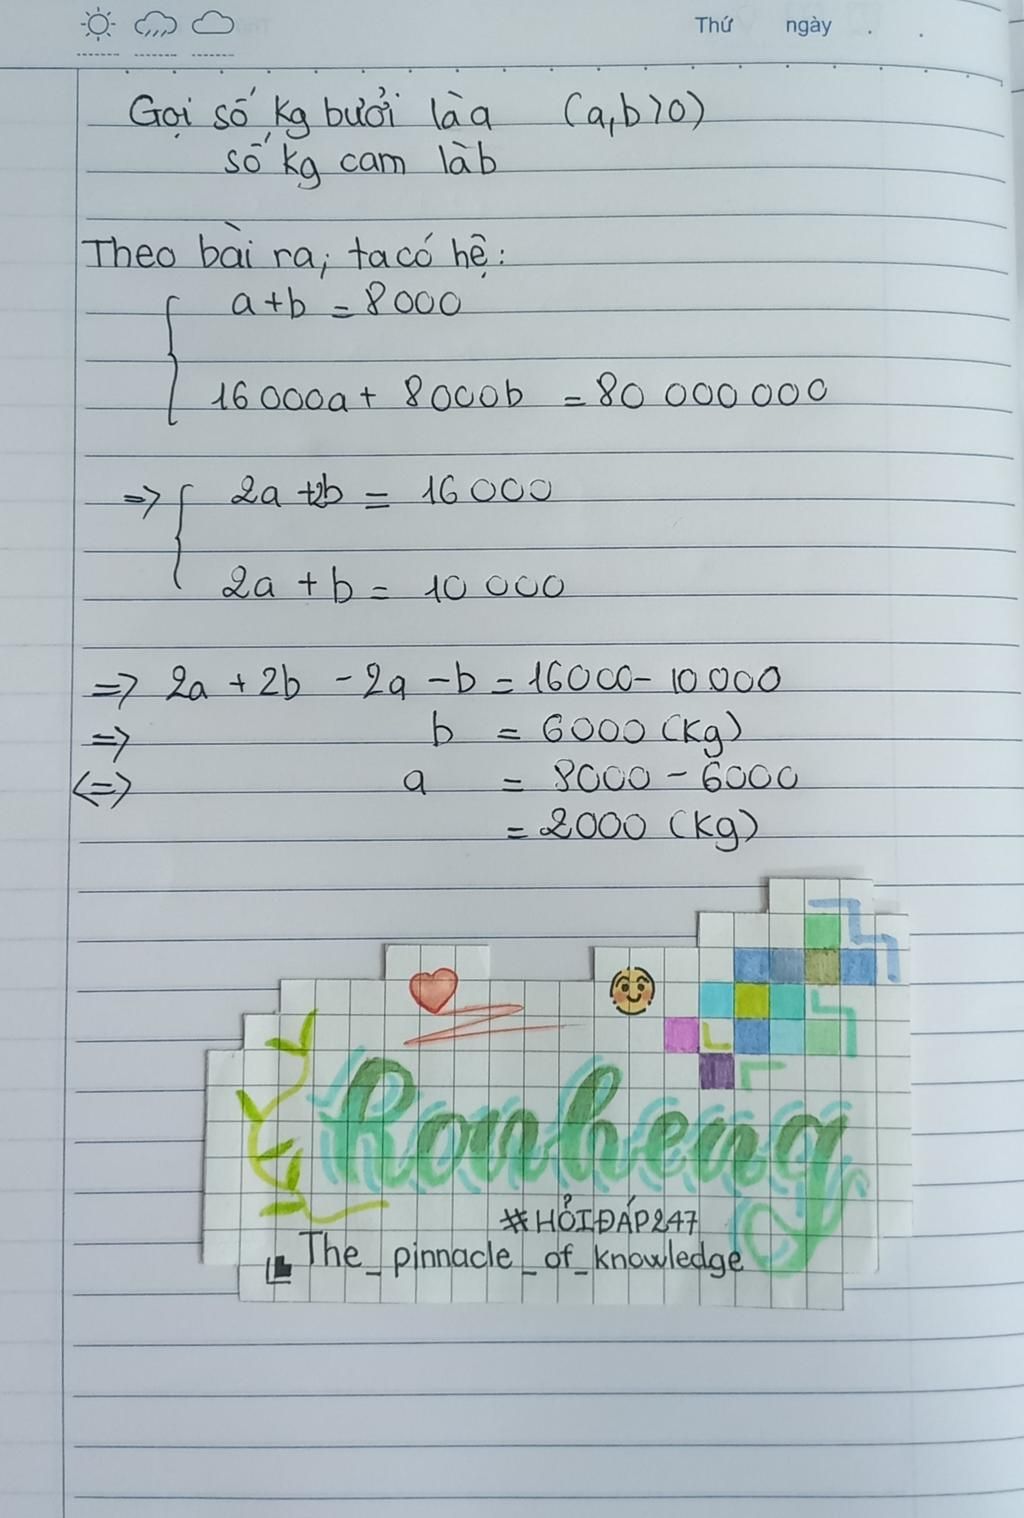 Thứ ngày . .
Gọi số kg bưởi là a (a,b>0)
số kg cam là b
Theo bài ra, ta có hệ:
a+b = 8000
16 000a + 8000b = 80 000 000
=> 2a +2b = 16 000
2a + b = 10 000
=> 2a + 2b - 2a - b = 16000 - 10 000
=> b = 6000 (kg)
<=> a = 8000 - 6000
= 2000 (kg)
Ronheng
#HỎIĐÁP247
The_pinnacle_of_knowledge